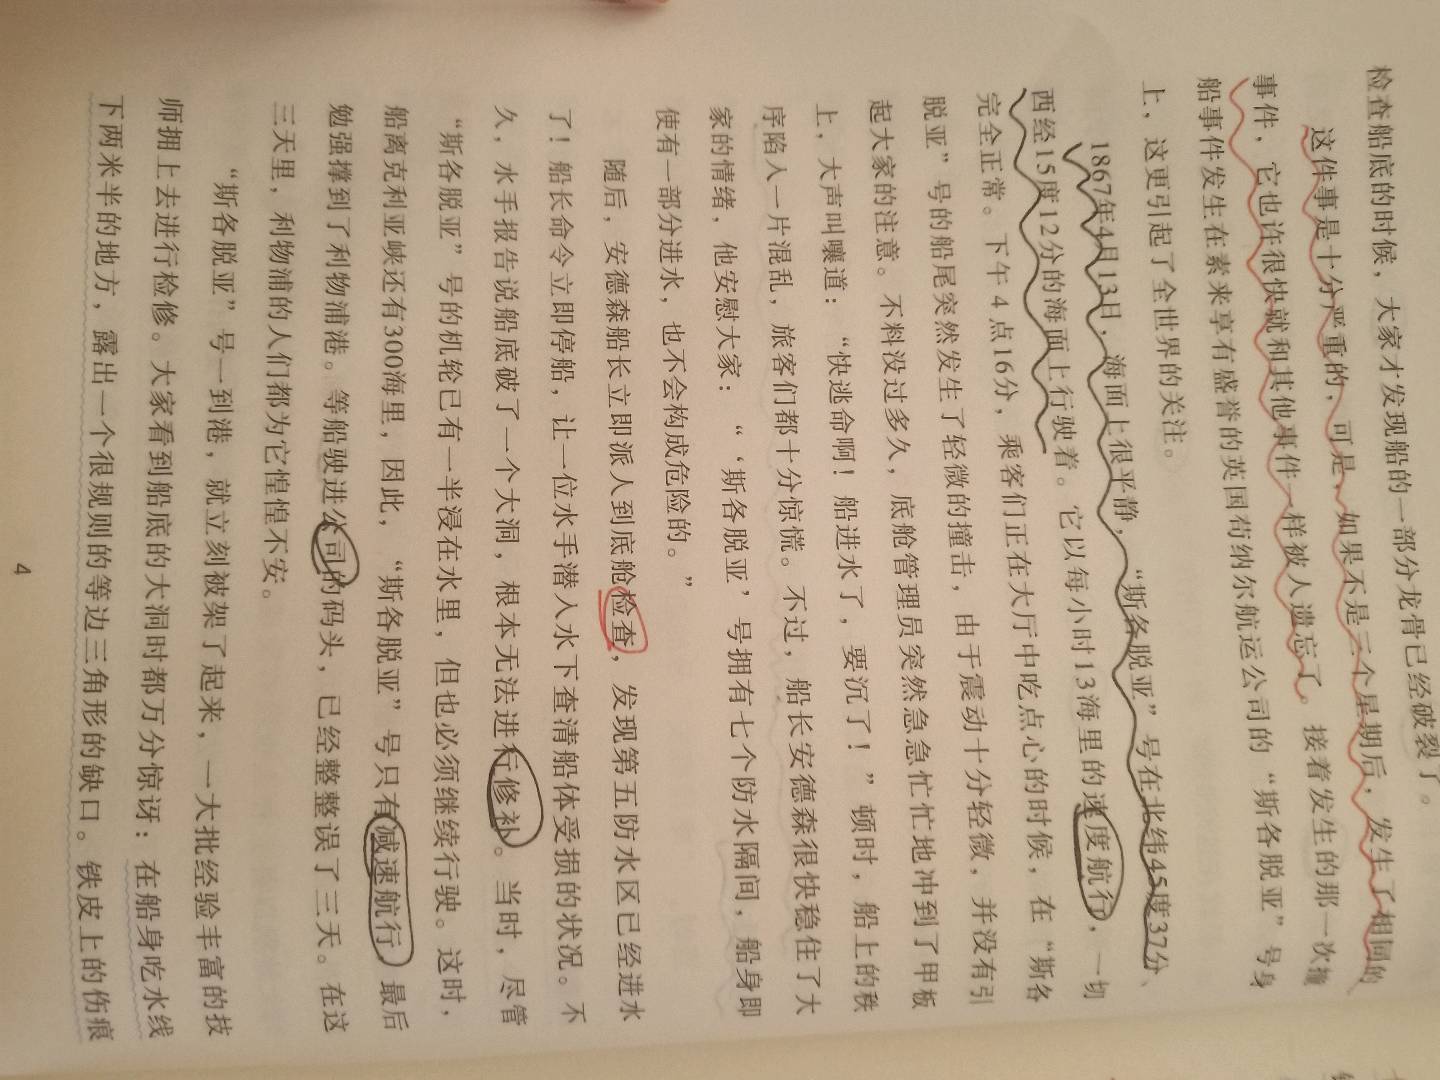 检查船底的时候，大家才发现船的一部分龙骨已经破裂了。
这件事是十分严重的，可是，如果不是三个星期后，发生了相同的
事件，它也许很快就和其他事件一样被人遗忘了。接着发生的那一次撞
船事件发生在素来享有盛誉的英国苟纳尔航运公司的“斯各脱亚”号身
上，这更引起了全世界的关注。
1867年4月13日，海面上很平静，“斯各脱亚”号在北纬45度37分、
西经15度12分的海面上行驶着。它以每小时13海里的速度航行，一切
完全正常。下午4点16分，乘客们正在大厅中吃点心的时候，在“斯各
脱亚”号的船尾突然发生了轻微的撞击，由于震动十分轻微，并没有引
起大家的注意。不料没过多久，底舱管理员突然急急忙忙地冲到了甲板
上，大声叫嚷道：“快逃命啊！船进水了，要沉了！”顿时，船上的秩
序陷入一片混乱，旅客们都十分惊慌。不过，船长安德森很快稳住了大
家的情绪，他安慰大家：“‘斯各脱亚’号拥有七个防水隔间，船身即
使有一部分进水，也不会构成危险的。”
随后，安德森船长立即派人到底舱检查，发现第五防水区已经进水
了！船长命令立即停船，让一位水手潜入水下查清船体受损的状况。不
久，水手报告说船底破了一个大洞，根本无法进行修补。当时，尽管
“斯各脱亚”号的机轮已有一半浸在水里，但也必须继续行驶。这时，
船离克利亚峡还有300海里，因此，“斯各脱亚”号只有减速航行，最后
勉强撑到了利物浦港。等船驶进公司的码头，已经整整误了三天。在这
三天里，利物浦的人们都为它惶惶不安。
“斯各脱亚”号一到港，就立刻被架了起来，一大批经验丰富的技
师拥上去进行检修。大家看到船底的大洞时都万分惊讶：在船身吃水线
下两米半的地方，露出一个很规则的等边三角形的缺口。铁皮上的伤痕
4